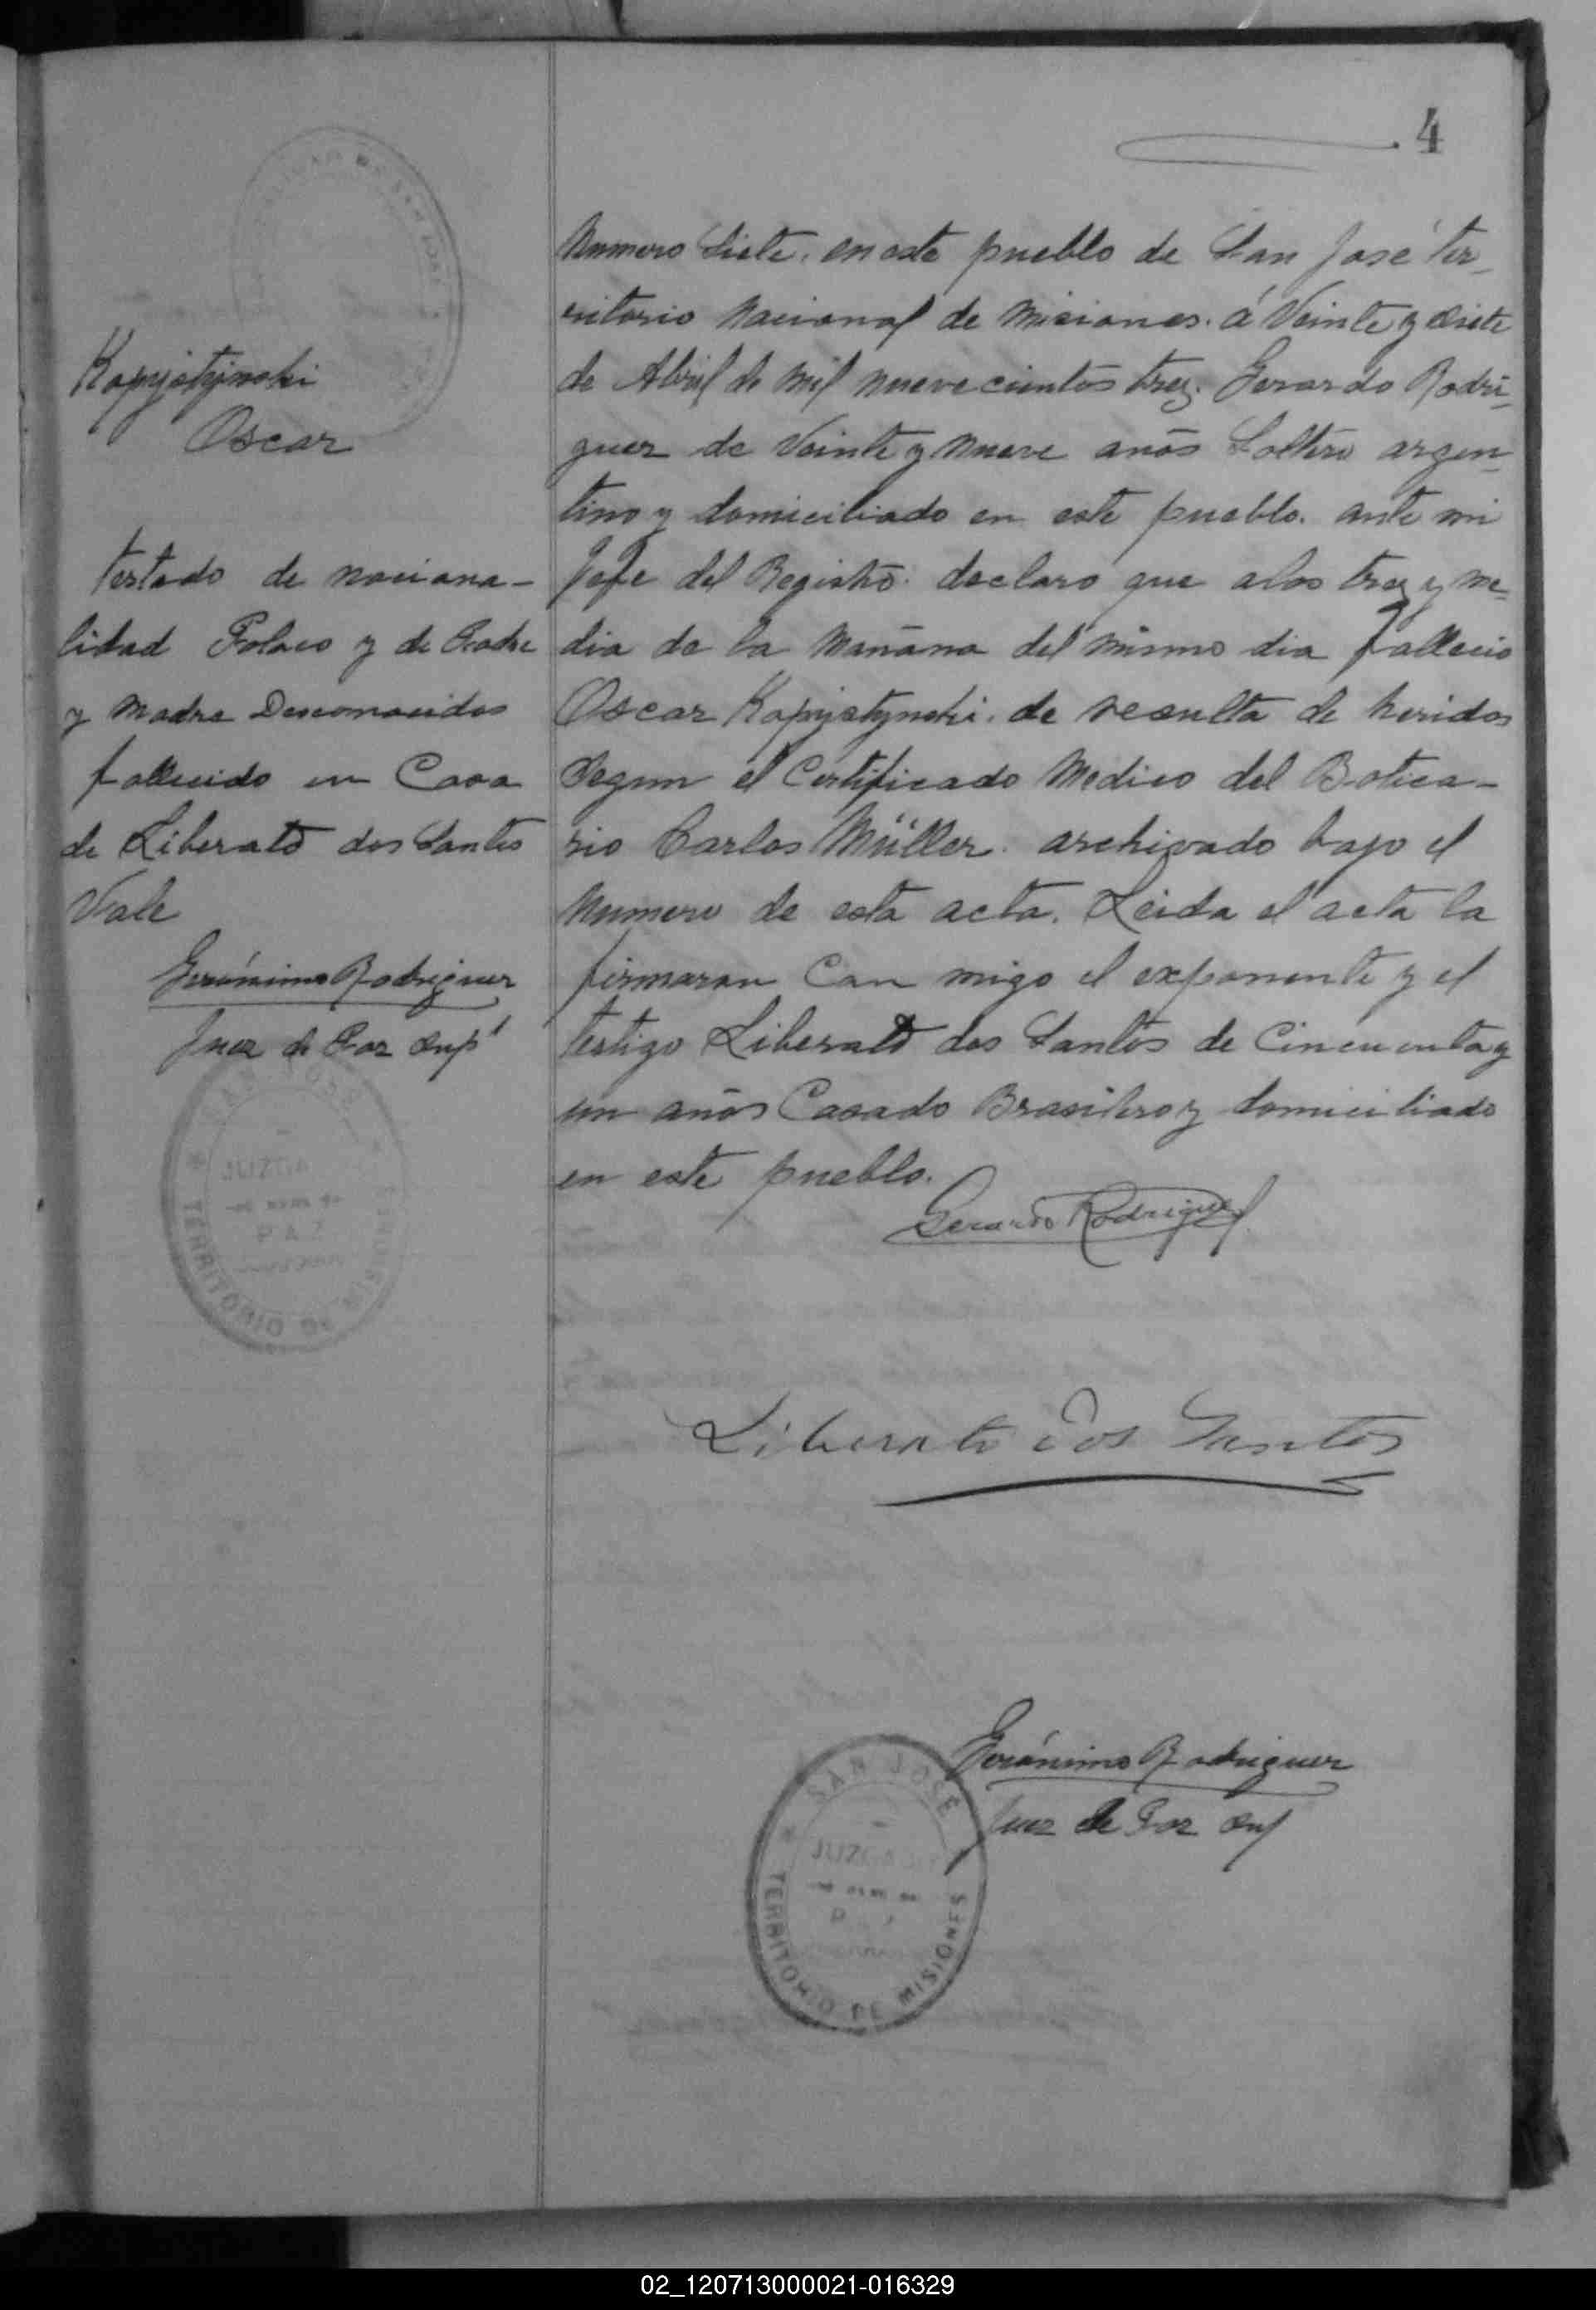 4
Kopystynski
Oscar
testado de naciona-
lidad Polaco y de Padre
y Madre Desconocidos
fallecido en Casa
de Liberato dos Santos
Vale
Gerónimo Rodriguez
Juez de Paz Supt
JUZGA
PAZ
TERRITORIO DE
Numero Siete. en este pueblo de San José ter-
ritorio Nacional de Misiones. á Veinte y Siete
de Abril de Mil nuevecientos trez. Gerardo Rodri-
guez de Veinte y Nueve años Soltero argen-
tino y domiciliado en este pueblo. ante mi
Jefe del Registro. declaro que a las trez y me-
dia de la Mañana del mismo dia fallecio
Oscar Kopystynski. de resulta de heridas
Segun el Certificado Medico del Botica-
rio Carlos Müller. archivado bajo el
Numero de esta acta. Leida el acta la
firmaron Con migo el exponente y el
testigo Liberato dos Santos de Cincuenta y
un años Casado Brasilero y domiciliado
en este pueblo.
Gerardo Rodriguez
Liberato dos Santos
Gerónimo Rodriguez
Juez de Paz Sup
SAN JOSÉ
JUZGADO
TERRITORIO DE MISIONES
02_120713000021-016329